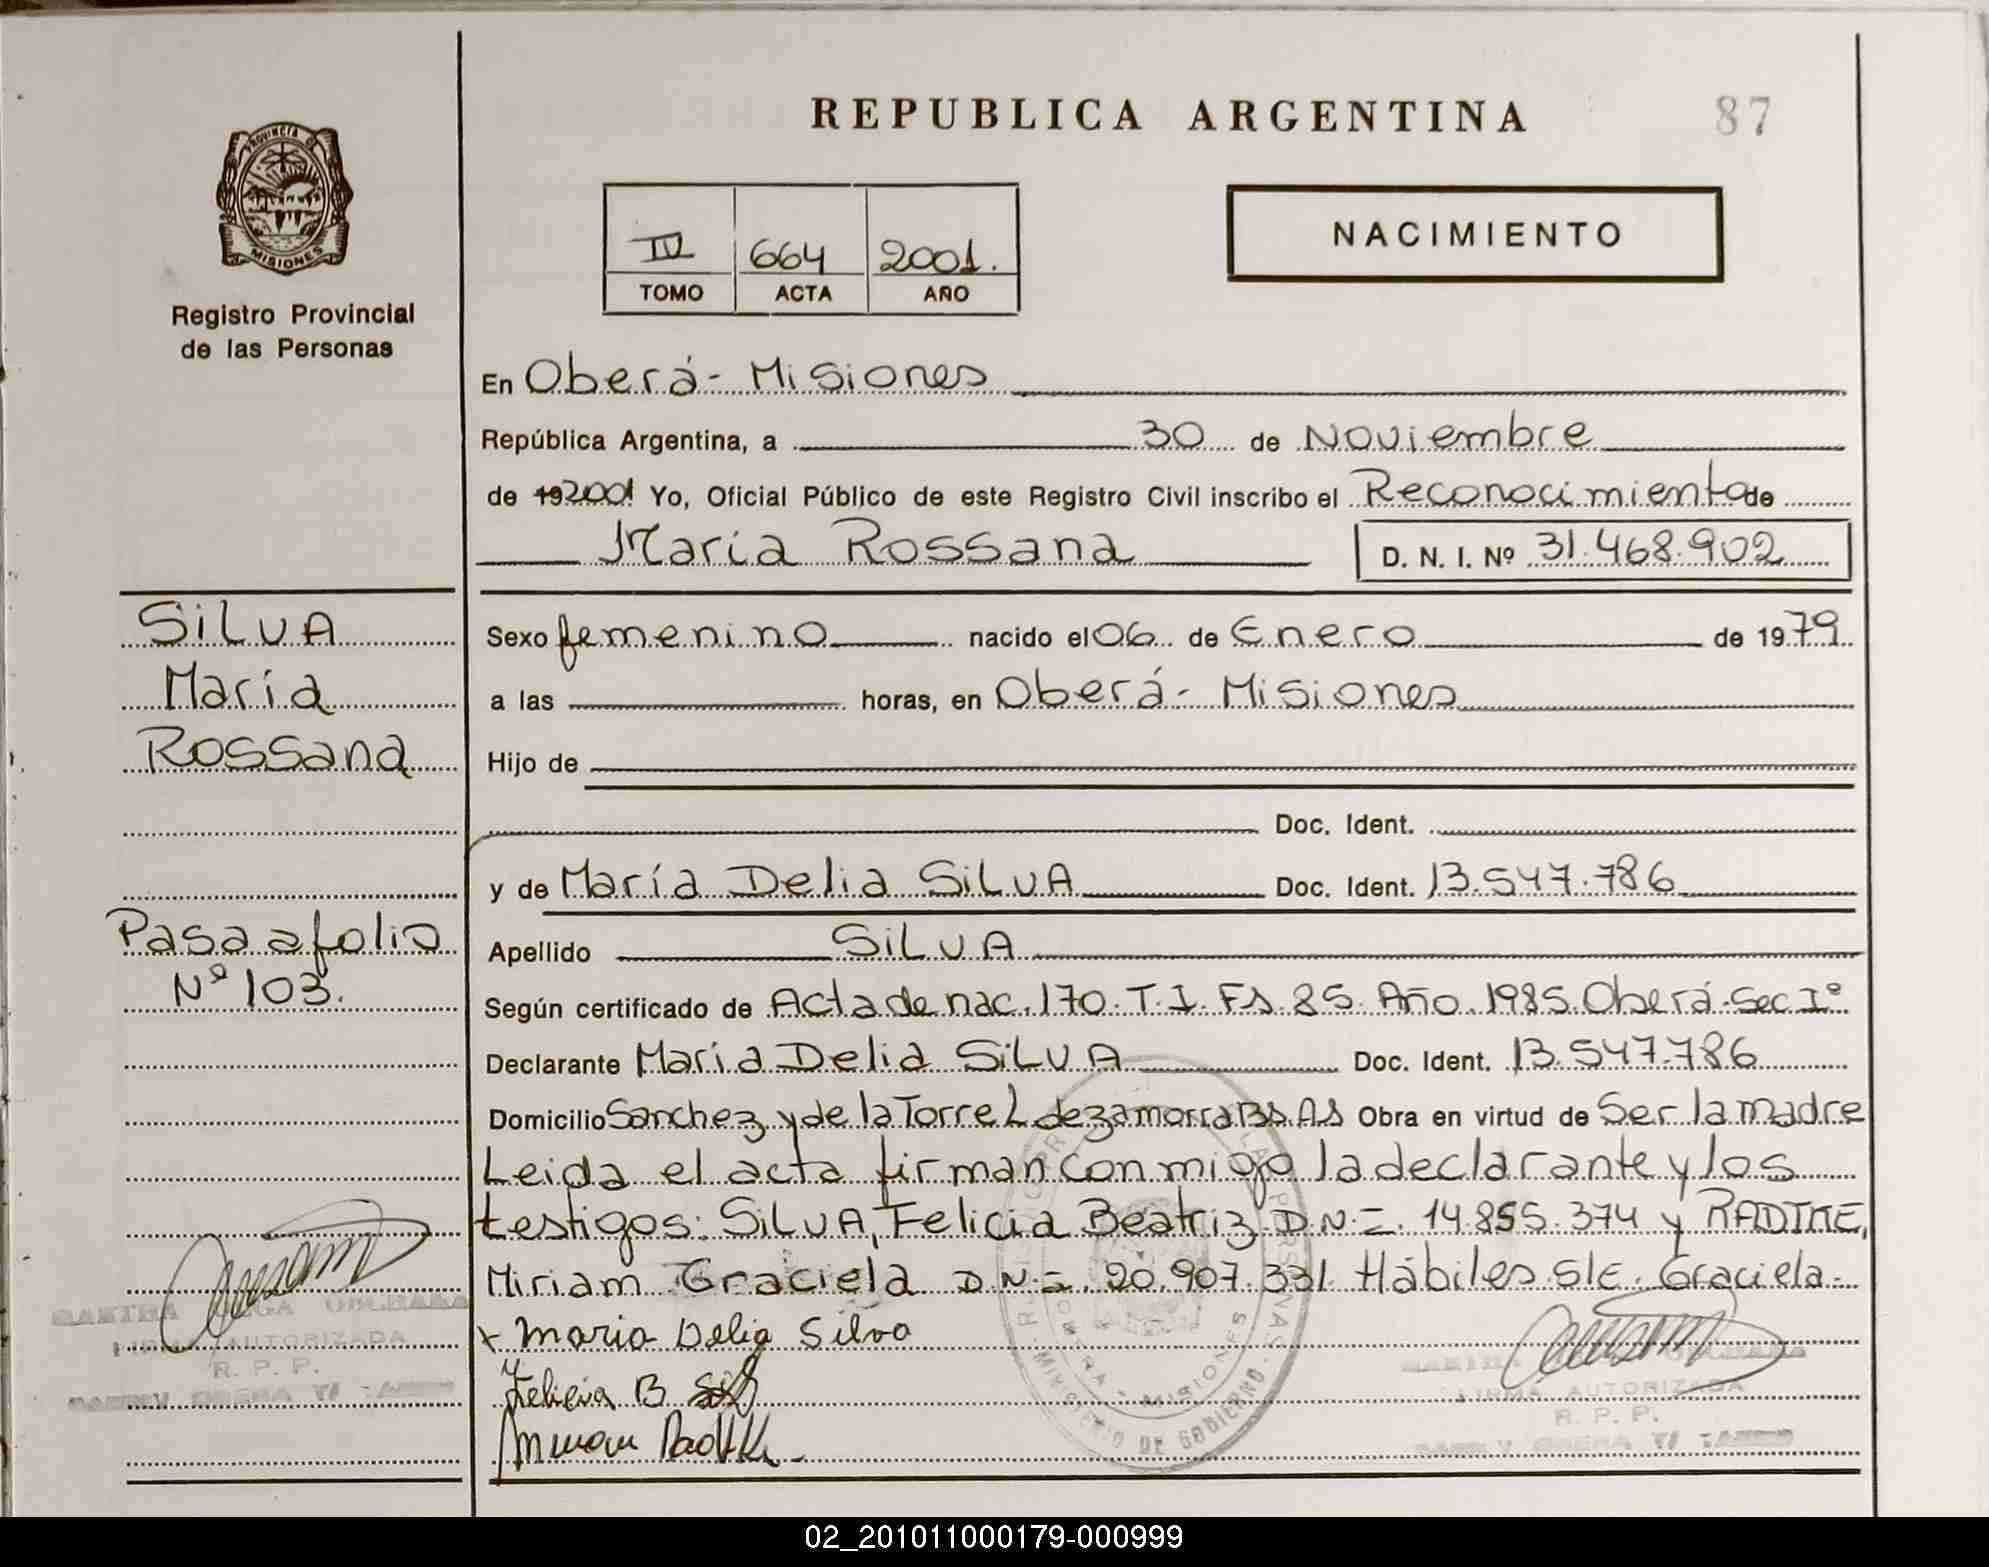 REPUBLICA ARGENTINA
87
PROVINCIA DE
MISIONES
Registro Provincial
de las Personas
IV 664 2001.
TOMO ACTA AÑO
NACIMIENTO
En Oberá - Misiones
República Argentina, a 30 de Noviembre
de 192001 Yo, Oficial Público de este Registro Civil inscribo el Reconocimiento de
María Rossana D. N. I. Nº 31.468.902
SILVA
María
Rossana
Pasa a folio
Nº 103.
Sexo femenino nacido el 06 de Enero de 1979
a las horas, en Oberá - Misiones
Hijo de
Doc. Ident.
y de María Delia SILVA Doc. Ident. 13.547.786
Apellido SILVA
Según certificado de Acta de nac. 170. T. I. Fs. 85. Año. 1985. Oberá. Sec Iº
Declarante María Delia SILVA Doc. Ident. 13.547.786
Domicilio Sanchez y de la Torre L de zamorra BS.AS Obra en virtud de Ser la madre
Leida el acta firman conmigo la declarante y los
testigos: SILVA, Felicia Beatriz D.N.=. 14.855.374 y RADTKE,
Miriam Graciela D.N.=. 20.907.331. Hábiles S/E. Graciela.-
x Maria Delia Silva
Felicia B
FIRMA AUTORIZADA
R. P. P.
FIRMA AUTORIZADA
R. P. P.
MINISTERIO DE GOBIERNO
OBERA - MISIONES
02_201011000179-000999